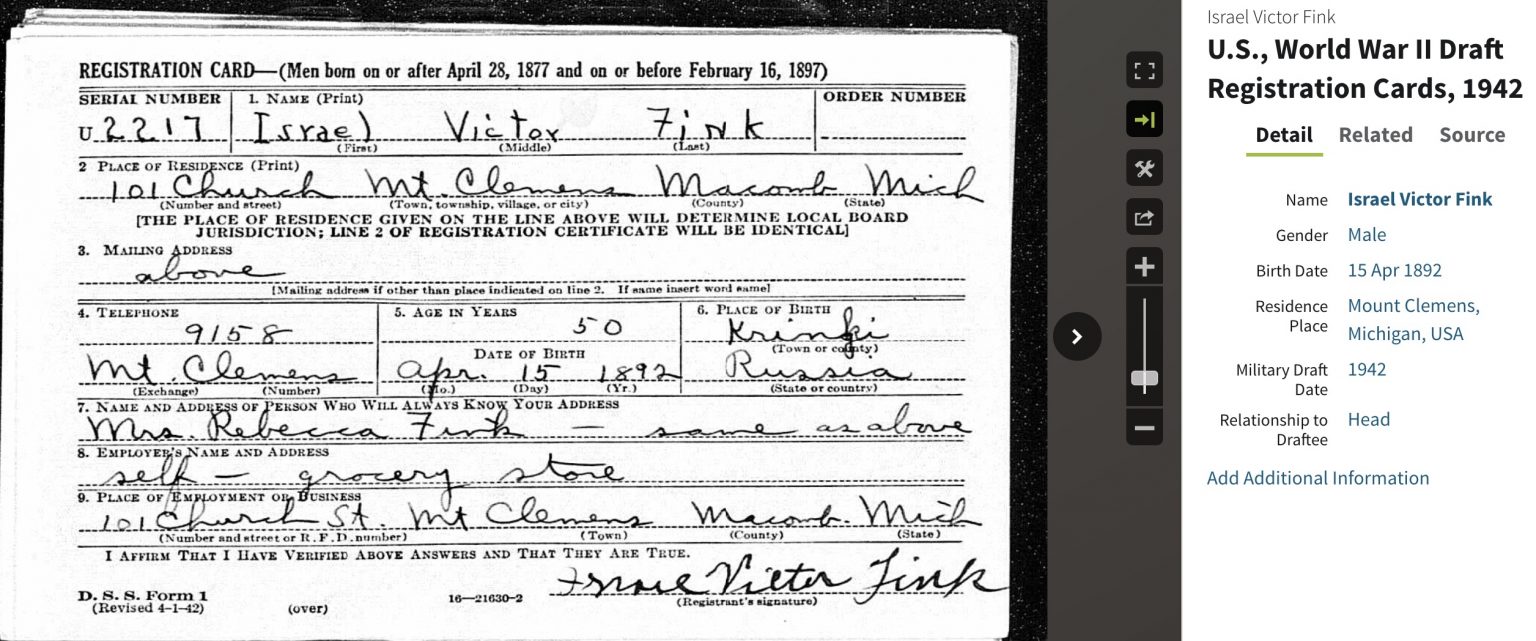 REGISTRATION CARD—(Men born on or after April 28, 1877 and on or before February 16, 1897)
SERIAL NUMBER 1. NAME (Print) ORDER NUMBER
U 2217 Israel Victor Fink
(First) (Middle) (Last)
2 PLACE OF RESIDENCE (Print)
101 Church Mt. Clemens Macomb Mich
(Number and street) (Town, township, village, or city) (County) (State)
[THE PLACE OF RESIDENCE GIVEN ON THE LINE ABOVE WILL DETERMINE LOCAL BOARD
JURISDICTION; LINE 2 OF REGISTRATION CERTIFICATE WILL BE IDENTICAL]
3. MAILING ADDRESS
above
[Mailing address if other than place indicated on line 2. If same insert word same]
4. TELEPHONE 5. AGE IN YEARS 6. PLACE OF BIRTH
9158 50 Krinki
(Town or county)
DATE OF BIRTH
Mt. Clemens Apr. 15 1892 Russia
(Exchange) (Number) (Mo.) (Day) (Yr.) (State or country)
7. NAME AND ADDRESS OF PERSON WHO WILL ALWAYS KNOW YOUR ADDRESS
Mrs. Rebecca Fink — same as above
8. EMPLOYER'S NAME AND ADDRESS
self — grocery store
9. PLACE OF EMPLOYMENT OR BUSINESS
101 Church St. Mt Clemens Macomb. Mich
(Number and street or R. F. D. number) (Town) (County) (State)
I AFFIRM THAT I HAVE VERIFIED ABOVE ANSWERS AND THAT THEY ARE TRUE.
Victor Fink
D. S. S. Form 1
(Revised 4-1-42) (over) 16—21630-2 (Registrant's signature)
Israel Victor Fink
U.S., World War II Draft
Registration Cards, 1942
Detail Related Source
Name Israel Victor Fink
Gender Male
Birth Date 15 Apr 1892
Residence Place Mount Clemens,
Michigan, USA
Military Draft Date 1942
Relationship to Draftee Head
Add Additional Information